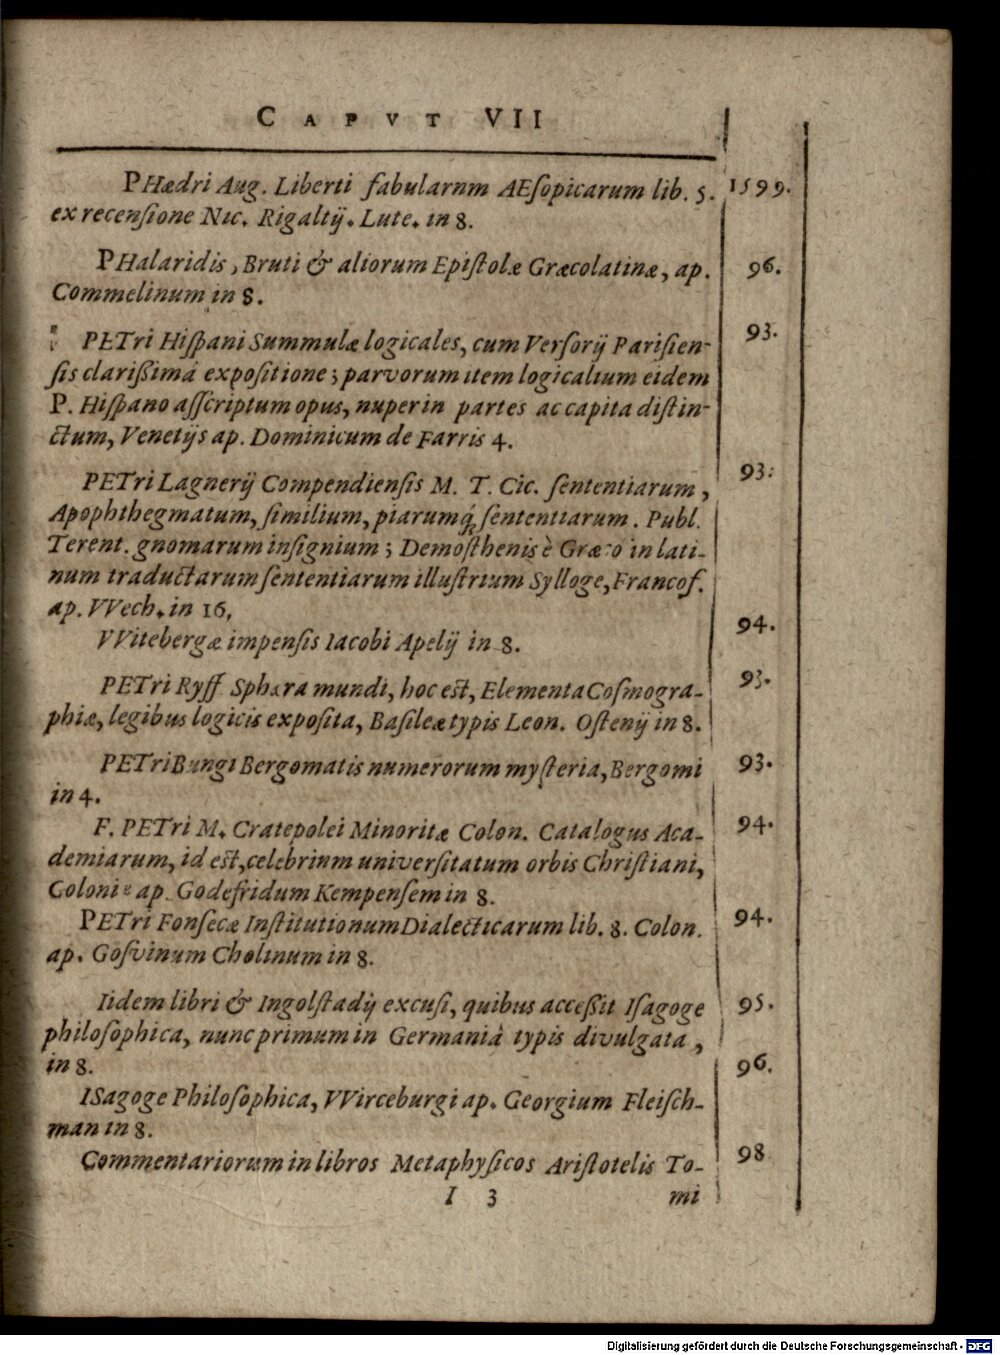 CAPVT VII
PHædri Aug. Liberti fabularnm AEſopicarum lib. 5. 1599.
ex recenſione Nic. Rigaltij. Lute. in 8.
PHalaridis, Bruti & aliorum Epiſtolæ Græcolatinæ, ap. 96.
Commelinum in 8.
PETri Hiſpani Summulæ logicales, cum Verſorij Pariſien- 93.
ſis clarißimâ expoſitione; parvorum item logicalium eidem
P. Hiſpano aſſcriptum opus, nuper in partes ac capita diſtin-
ctum, Venetijs ap. Dominicum de Farris 4.
PETri Lagnerij Compendienſis M. T. Cic. ſententiarum, 93.
Apophthegmatum, ſimilium, piarumq́ ſententiarum. Publ.
Terent. gnomarum inſignium; Demoſthenis è Græco in lati-
num traductarum ſententiarum illuſtrium Sylloge, Francof.
ap. VVech. in 16,
VVitebergæ impenſis Iacobi Apelij in 8. 94.
PETri Ryff Sphæra mundi, hoc eſt, Elementa Coſmogra- 93.
phiæ, legibus logicis expoſita, Baſileæ typis Leon. Oſtenij in 8.
PETri Bungi Bergomatis numerorum myſteria, Bergomi 93.
in 4.
F. PETri M. Cratepolei Minoritæ Colon. Catalogus Aca- 94.
demiarum, id eſt, celebrinm univerſitatum orbis Chriſtiani,
Coloniæ ap. Godefridum Kempenſem in 8.
PETri Fonſecæ Inſtitutionum Dialecticarum lib. 8. Colon. 94.
ap. Goſvinum Cholinum in 8.
Iidem libri & Ingolſtadij excuſi, quibus acceßit Iſagoge 95.
philoſophica, nunc primum in Germaniâ typis divulgata,
in 8. 96.
ISagoge Philoſophica, VVirceburgi ap. Georgium Fleiſch-
man in 8.
Commentariorum in libros Metaphyſicos Ariſtotelis To- 98
I 3 mi
Digitalisierung gefördert durch die Deutsche Forschungsgemeinschaft - DFG